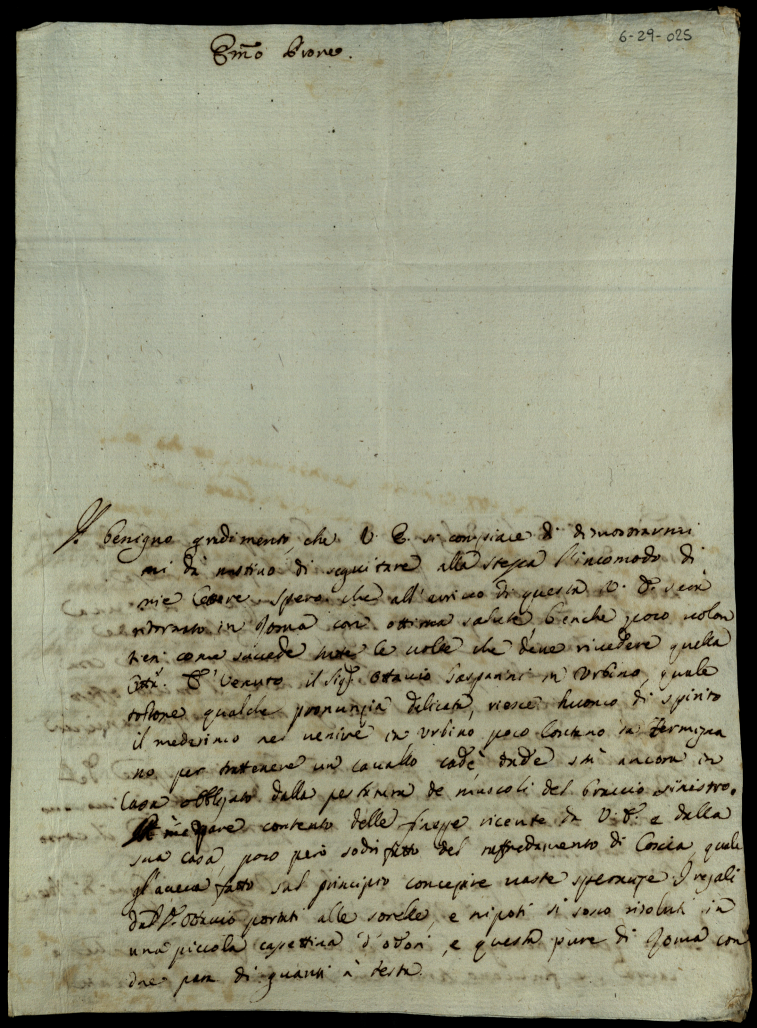 6-29-025
Em͞o Prone.
Il benigno gradimento, che V. E. si compiace di dimostrarmi
mi dà motivo di seguitare alla stessa l'incomodo di
mie lettere. Spero che all'arrivo di questa V. E. sarà
ritornato in Roma con ottima salute, benche poco volon
tieri come succede tutte le volte che deve rivedere quella
Città. È venuto il Sig.r Ottavio Gasparini in Urbino, quale
toltone qualche pronunzia delicata, riesce huomo di spirito
il medesimo nel venire in Urbino poco lontano da Fermigna
no per trattenere un cavallo cadè onde stà ancora in
Casa obbligato dalla pestatura de muscoli del braccio sinistro.
Mi pare contento delle finezze ricevute da V. E. e dalla
sua casa, poco però sodisfatto del raffredamento di Corcia, quale
gl'aveva fatto sul principio concepire vaste speranze. I regali
dal S.r Ottavio portati alle sorelle, e nipoti si sono risoluti in
una piccola cassettina d'odori, e questa pure di Roma con
due para di guanti à testa.